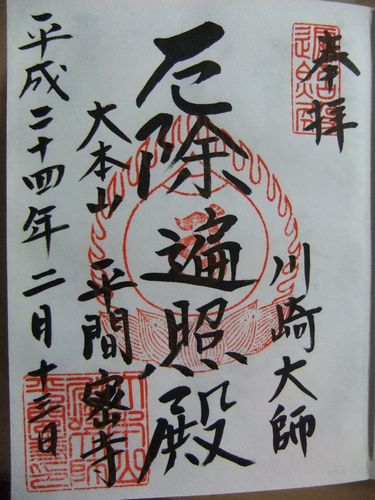 奉拝
川崎大師
厄除遍照殿
大本山
平間密寺
平成二十四年二月十三日